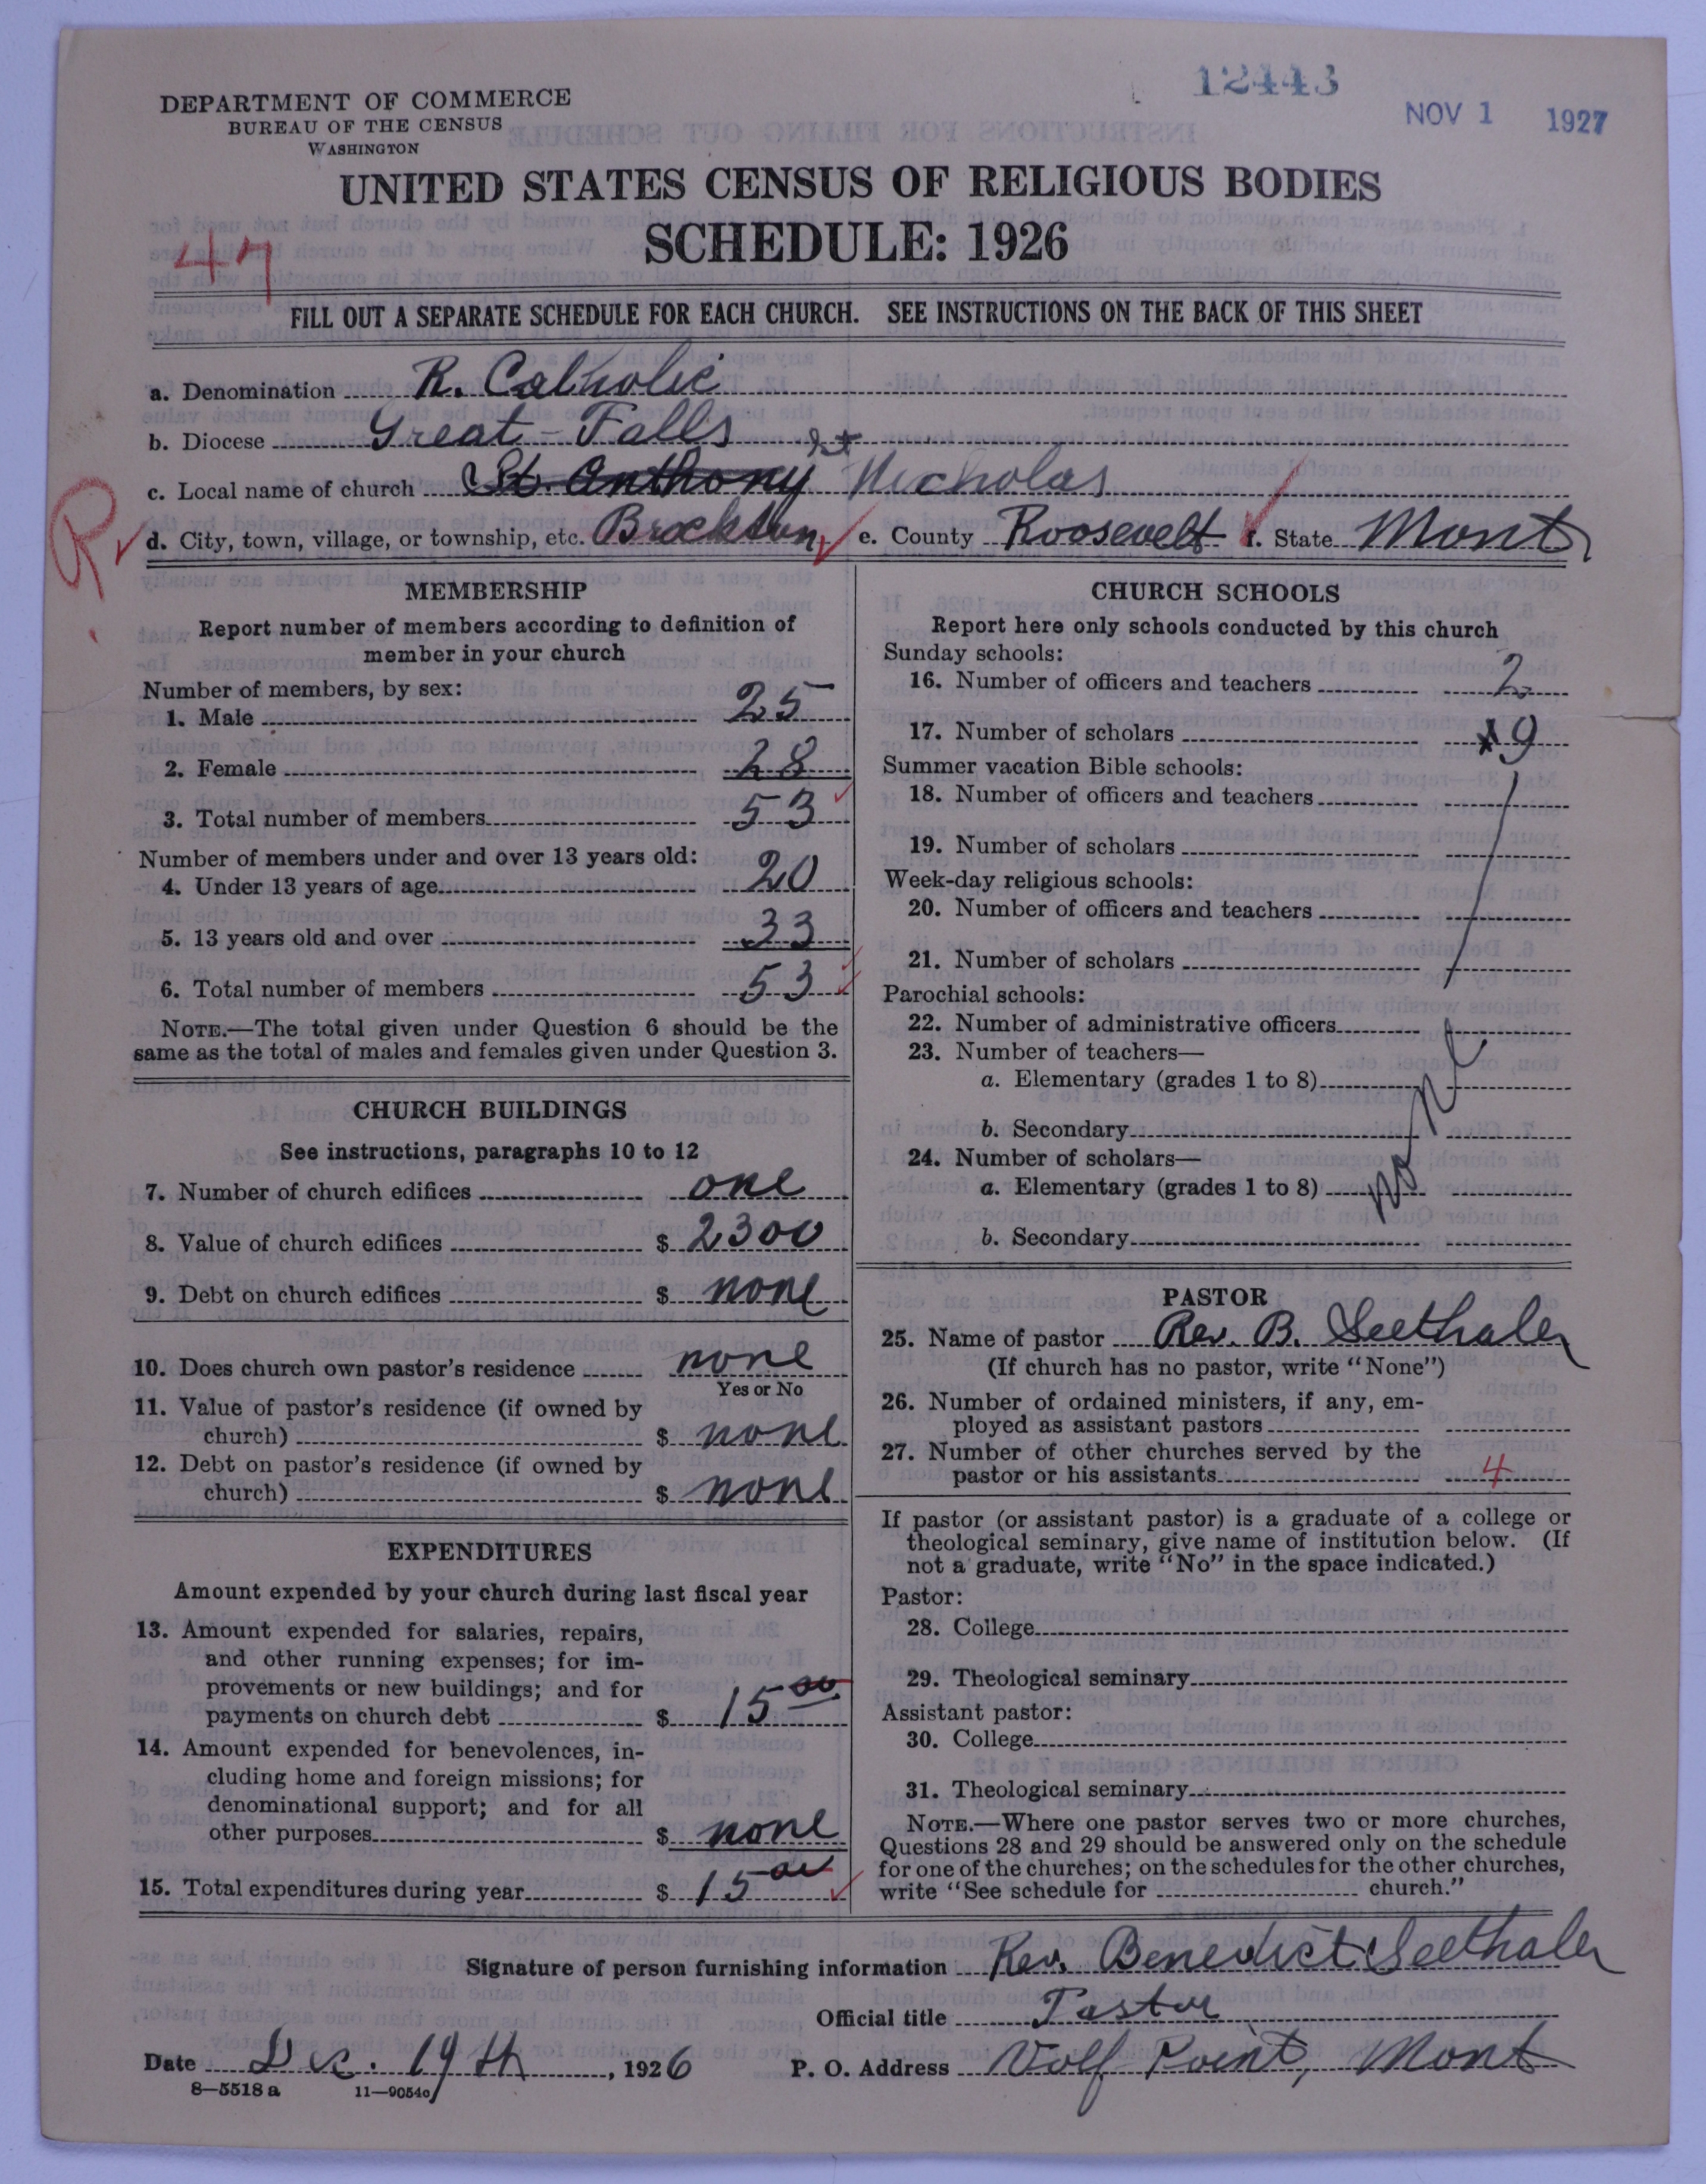 12443
NOV 1 1927
DEPARTMENT OF COMMERCE
BUREAU OF THE CENSUS
WASHINGTON
UNITED STATES CENSUS OF RELIGIOUS BODIES
SCHEDULE: 1926
47
FILL OUT A SEPARATE SCHEDULE FOR EACH CHURCH. SEE INSTRUCTIONS ON THE BACK OF THIS SHEET
a. Denomination R. Catholic
b. Diocese Great-Falls
c. Local name of church St. Anthony St Nicholas
R
d. City, town, village, or township, etc. Brockton e. County Roosevelt f. State Mont
MEMBERSHIP
Report number of members according to definition of
member in your church
Number of members, by sex:
1. Male 25
2. Female 28
3. Total number of members 53
Number of members under and over 13 years old:
4. Under 13 years of age 20
5. 13 years old and over 33
6. Total number of members 53
NOTE.—The total given under Question 6 should be the
same as the total of males and females given under Question 3.
CHURCH BUILDINGS
See instructions, paragraphs 10 to 12
7. Number of church edifices one
8. Value of church edifices $ 2300
9. Debt on church edifices $ none
10. Does church own pastor's residence none
Yes or No
11. Value of pastor's residence (if owned by
church) $ none
12. Debt on pastor's residence (if owned by
church) $ none
EXPENDITURES
Amount expended by your church during last fiscal year
13. Amount expended for salaries, repairs,
and other running expenses; for im-
provements or new buildings; and for
payments on church debt $ 15 00
14. Amount expended for benevolences, in-
cluding home and foreign missions; for
denominational support; and for all
other purposes $ none
15. Total expenditures during year $ 15 00
CHURCH SCHOOLS
Report here only schools conducted by this church
Sunday schools:
16. Number of officers and teachers 2
17. Number of scholars 9
Summer vacation Bible schools:
18. Number of officers and teachers
19. Number of scholars
Week-day religious schools:
20. Number of officers and teachers
21. Number of scholars
Parochial schools:
22. Number of administrative officers
23. Number of teachers—
a. Elementary (grades 1 to 8)
none
b. Secondary
24. Number of scholars—
a. Elementary (grades 1 to 8)
b. Secondary
PASTOR
25. Name of pastor Rev. B. Seethaler
(If church has no pastor, write "None")
26. Number of ordained ministers, if any, em-
ployed as assistant pastors
27. Number of other churches served by the
pastor or his assistants 4
If pastor (or assistant pastor) is a graduate of a college or
theological seminary, give name of institution below. (If
not a graduate, write "No" in the space indicated.)
Pastor:
28. College
29. Theological seminary
Assistant pastor:
30. College
31. Theological seminary
NOTE.—Where one pastor serves two or more churches,
Questions 28 and 29 should be answered only on the schedule
for one of the churches; on the schedules for the other churches,
write "See schedule for church."
Signature of person furnishing information Rev. Benedict Seethaler
Official title Pastor
Date Dec. 19th, 1926 P. O. Address Wolf Point, Mont
8—5518 a 11—9054